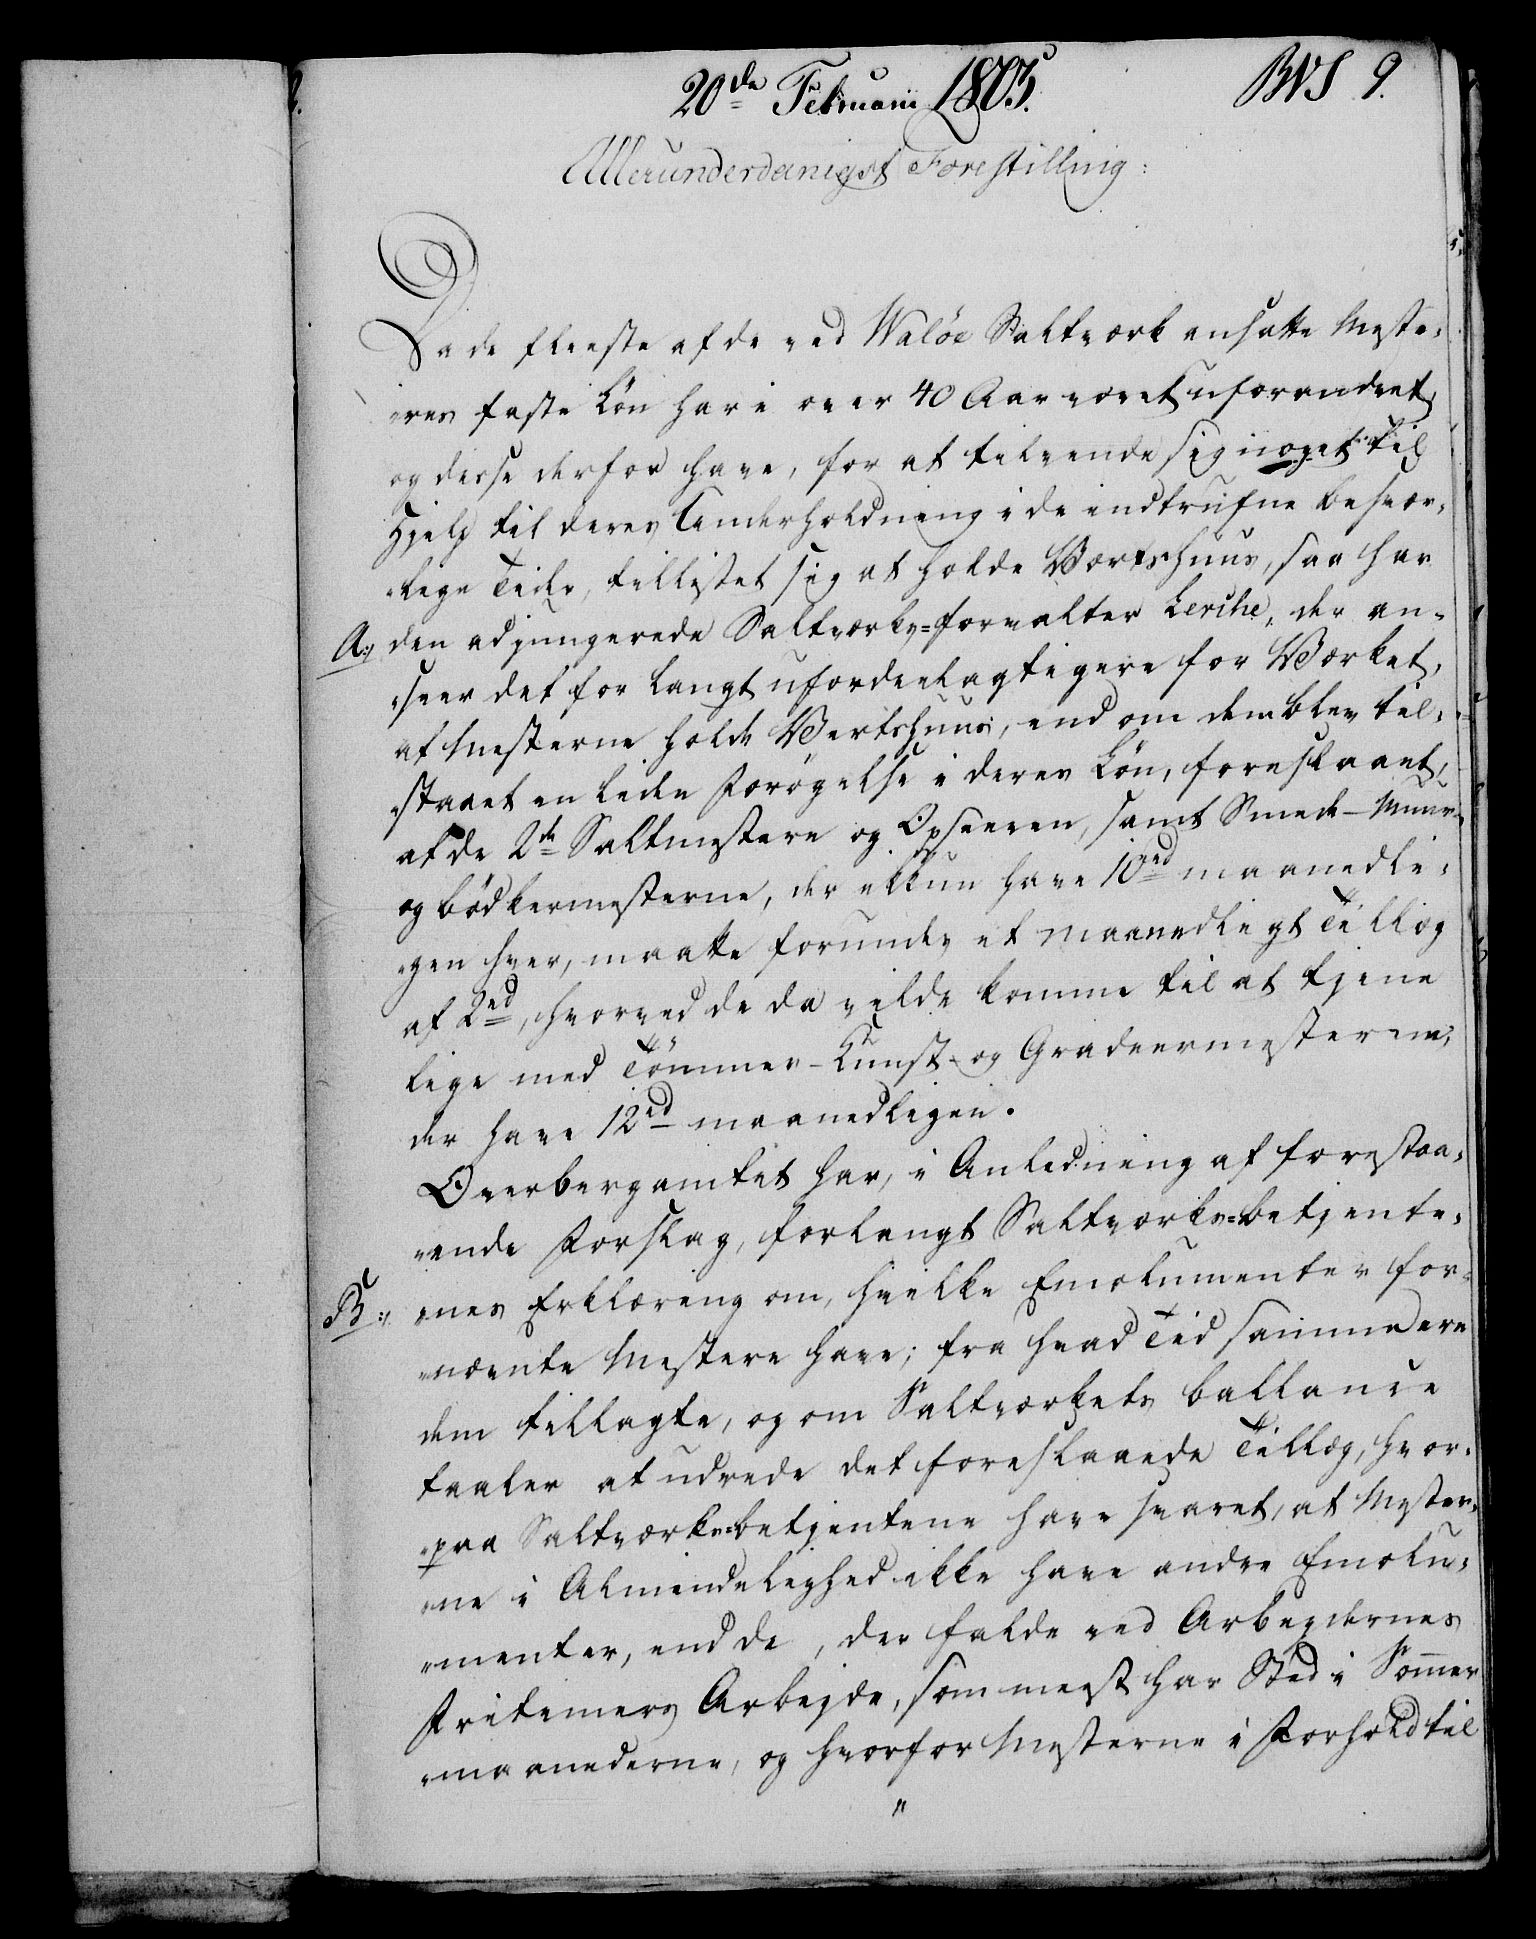 20de Februarii 1803.
BVS 9.
Allerunderdanigst Forestilling:
Da de fleeste af de ved Waløe Saltværk ansatte Meste,
„res faste Løn har i over 40 Aar været uforandret,
og disse derfor have, for at tilvende sig noget til
Hjelp til deres Underholdning i de indtrufne besvær,
„lige Tider, tilliistet sig at holde Værtshuus, saa har
A:, den adjungerede Saltværks=forvalter Lerche, der an,
„seer det for langt ufordeelagtigere for Værket,
at Mesterne holde Vertshuus, end om dem blev til,
„staaet en liden Forøgelse i deres Løn, foreslaaet,
at de 2de Saltmestere og Opseeren, samt Smede- Muur-
og bødkermesterne, der ikkun have 10rd maanedli,
„gen hver, maatte forundes et maanedligt Tillæg
af 2rd, hvorved de da vilde komme til at tjene
lige med Tømmer- Kunst- og Gradeermesterne,
der have 12rd maanedligen.
Overbergamtet har, i Anledning af forestaa,
„ende Forslag, forlangt Saltværks=betjente,
B:, „nes Erklæring om, hvilke Emolumenter for,
„nævnte Mestere have; fra hvad Tid samme ere
dem tillagte, og om Saltværkets ballance
taaler at udrede det foreslaaede Tillæg, hvor,
„paa Saltværks=betjentene have svaret, at Mester,
„ne i Almindelighed ikke have andre Emolu,
„menter, end de, der falde ved Arbejdernes
Fritimers Arbejde, som meest har Sted i Sommer
„maanederne, og hvorfor Mesterne i Forhold til